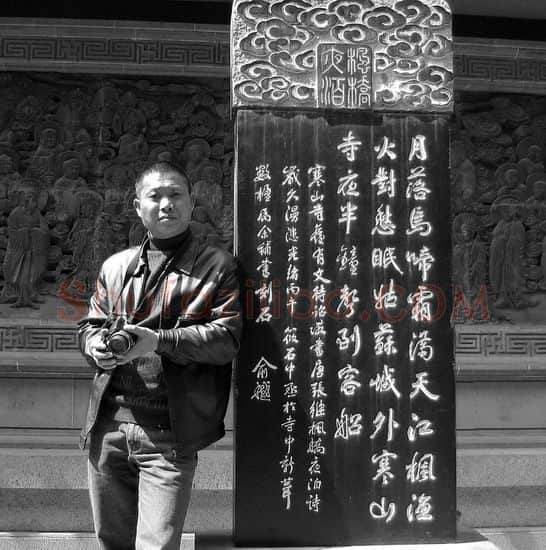 楓橋
夜泊
月落烏啼霜滿天江楓漁
火對愁眠姑蘇城外寒山
寺夜半鐘聲到客船
寒山寺舊有文待詔所書唐張繼楓橋夜泊詩
歲久漫漶光緒丙午筱石中丞於寺中新葺
數楹屬余補書刻石
俞樾
Shufaziliao.COM